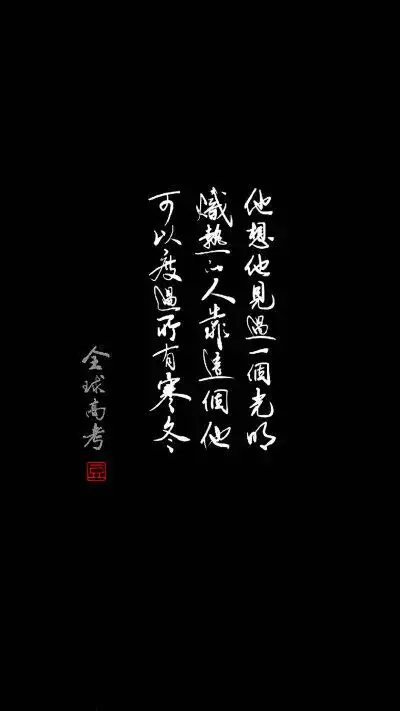 他想他見過一個光明
熾熱的人靠這個他
可以度過所有寒冬
全球高考